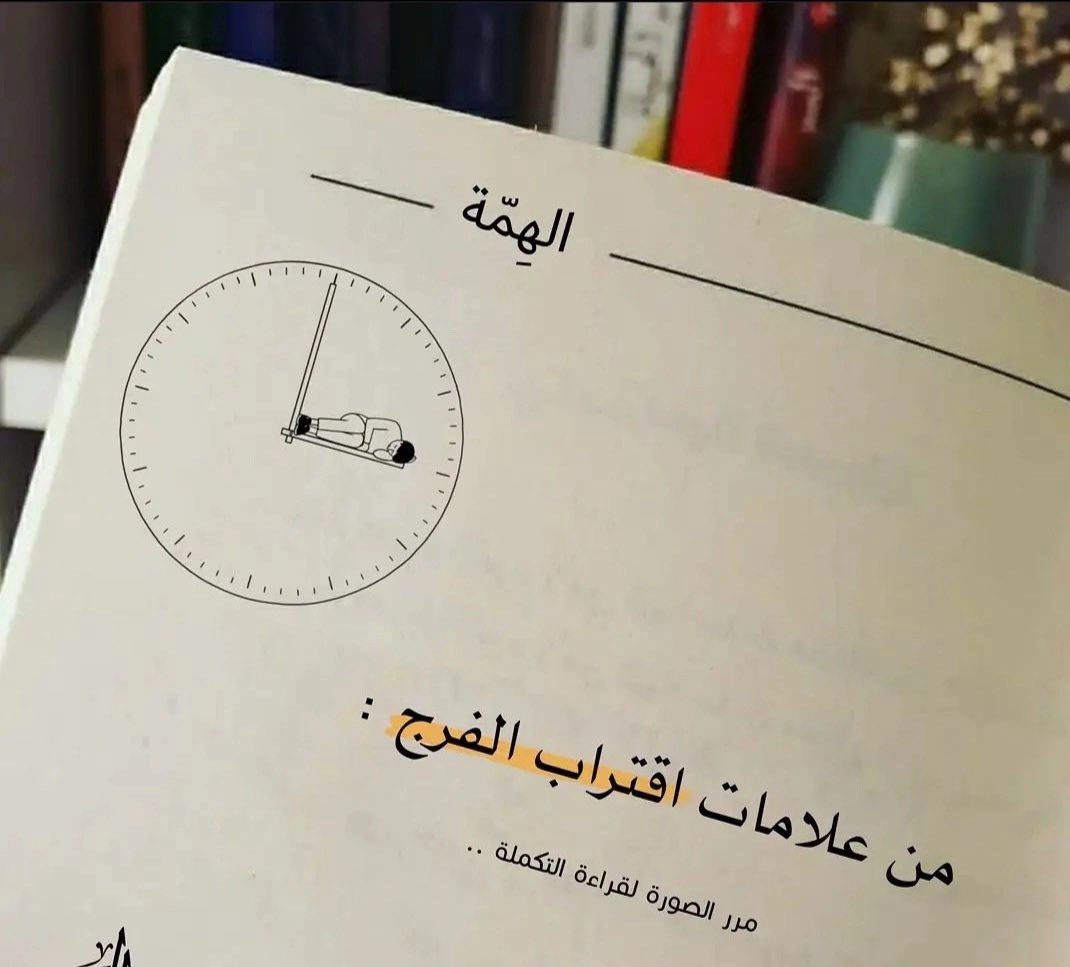 الهِمّة
من علامات اقتراب الفرج :
مرر الصورة لقراءة التكملة ..